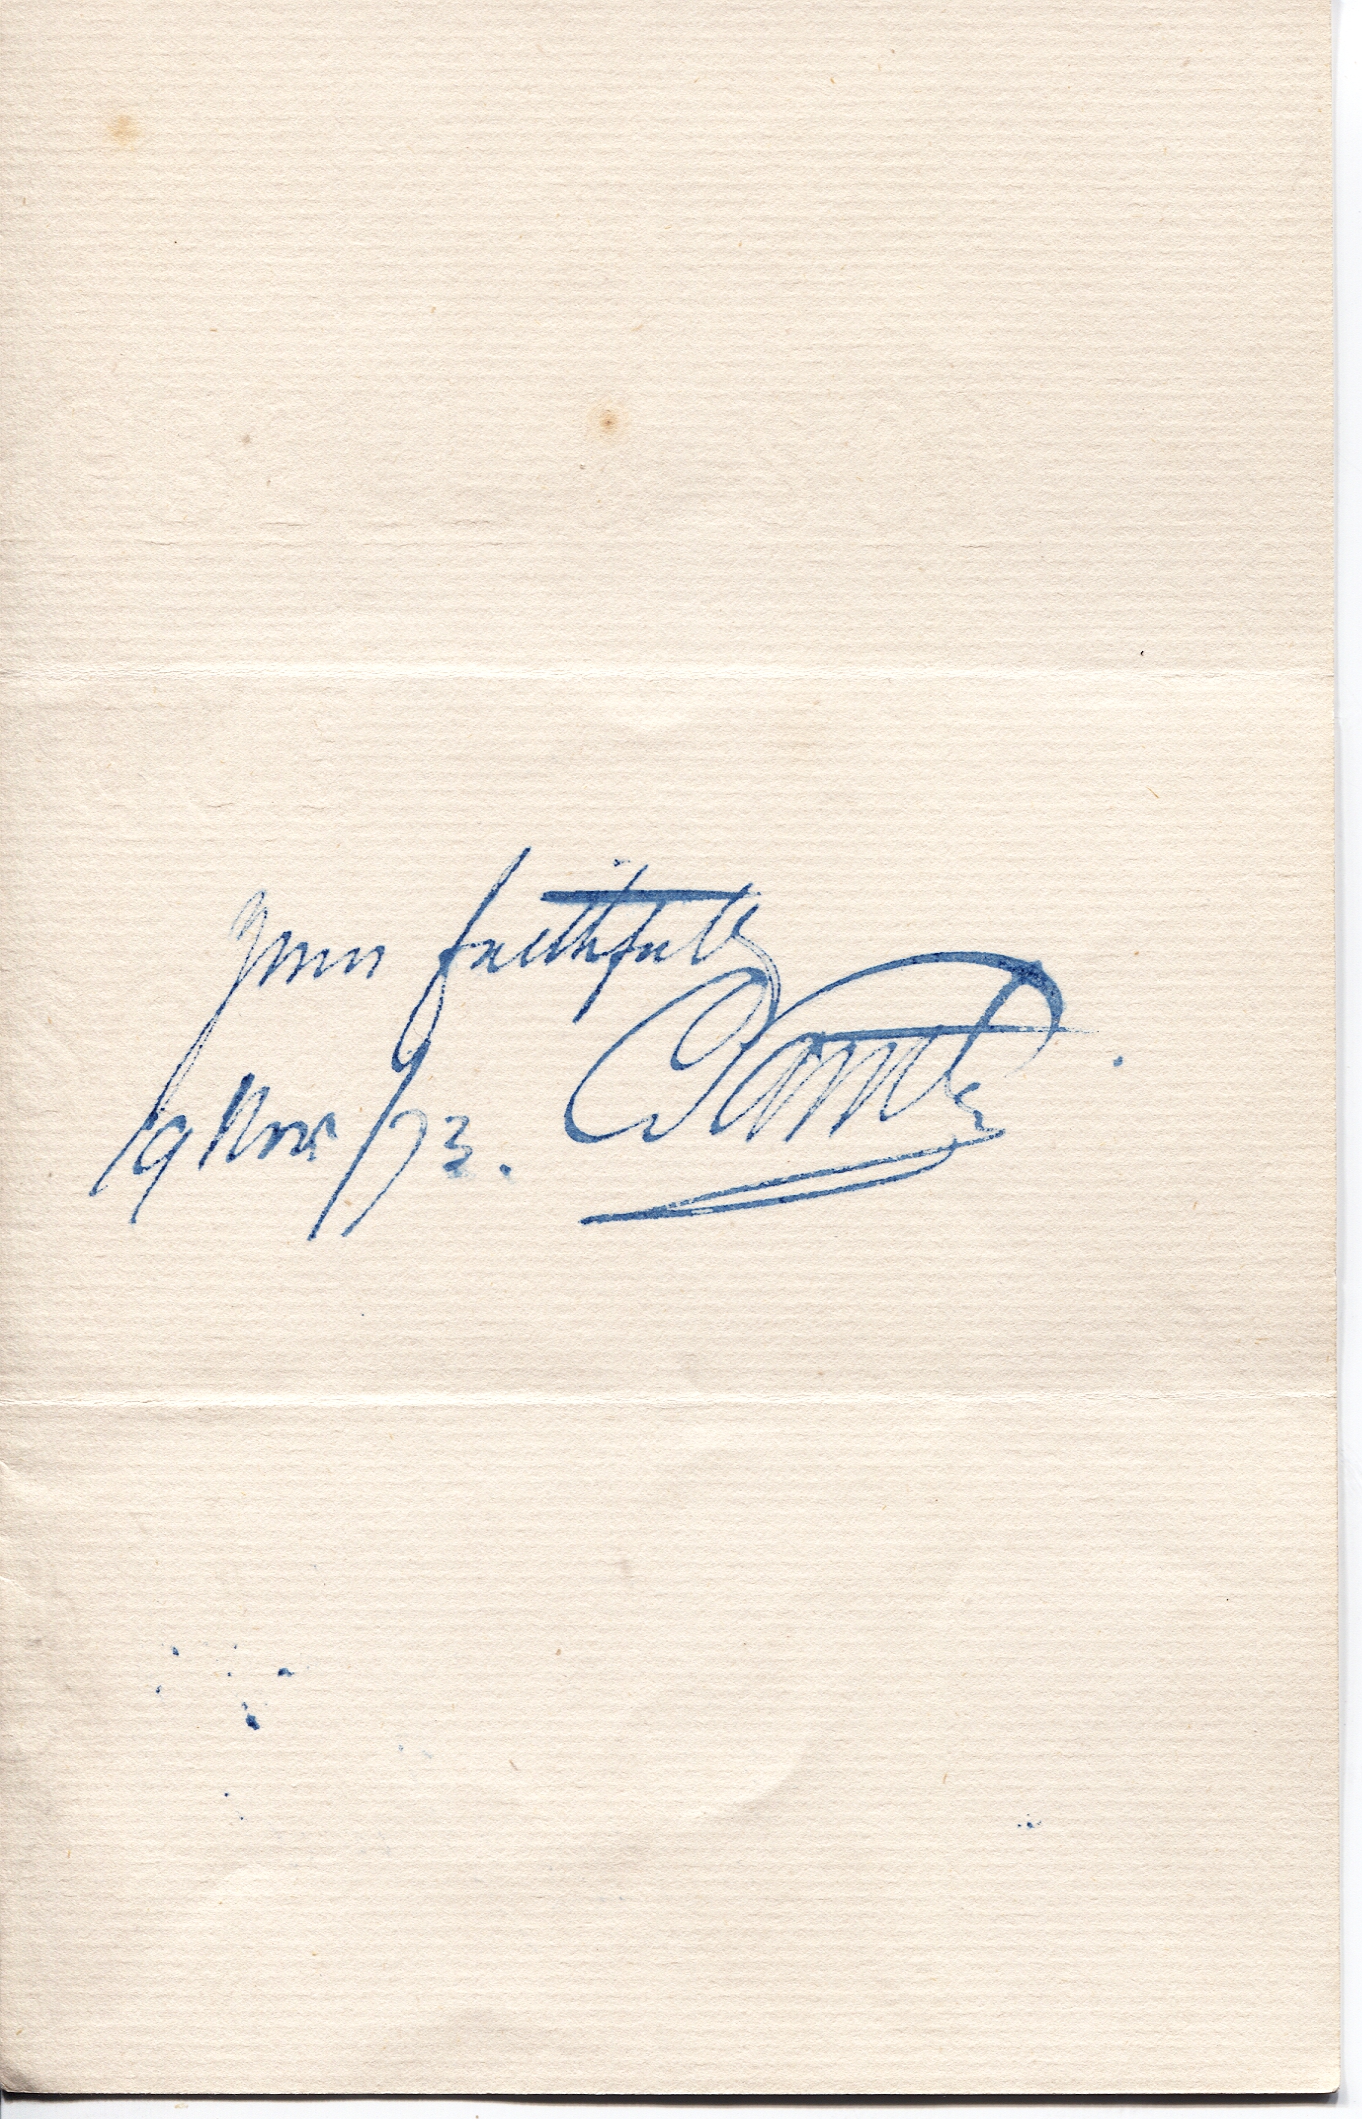 Yours faithfully
19 Nov /73.